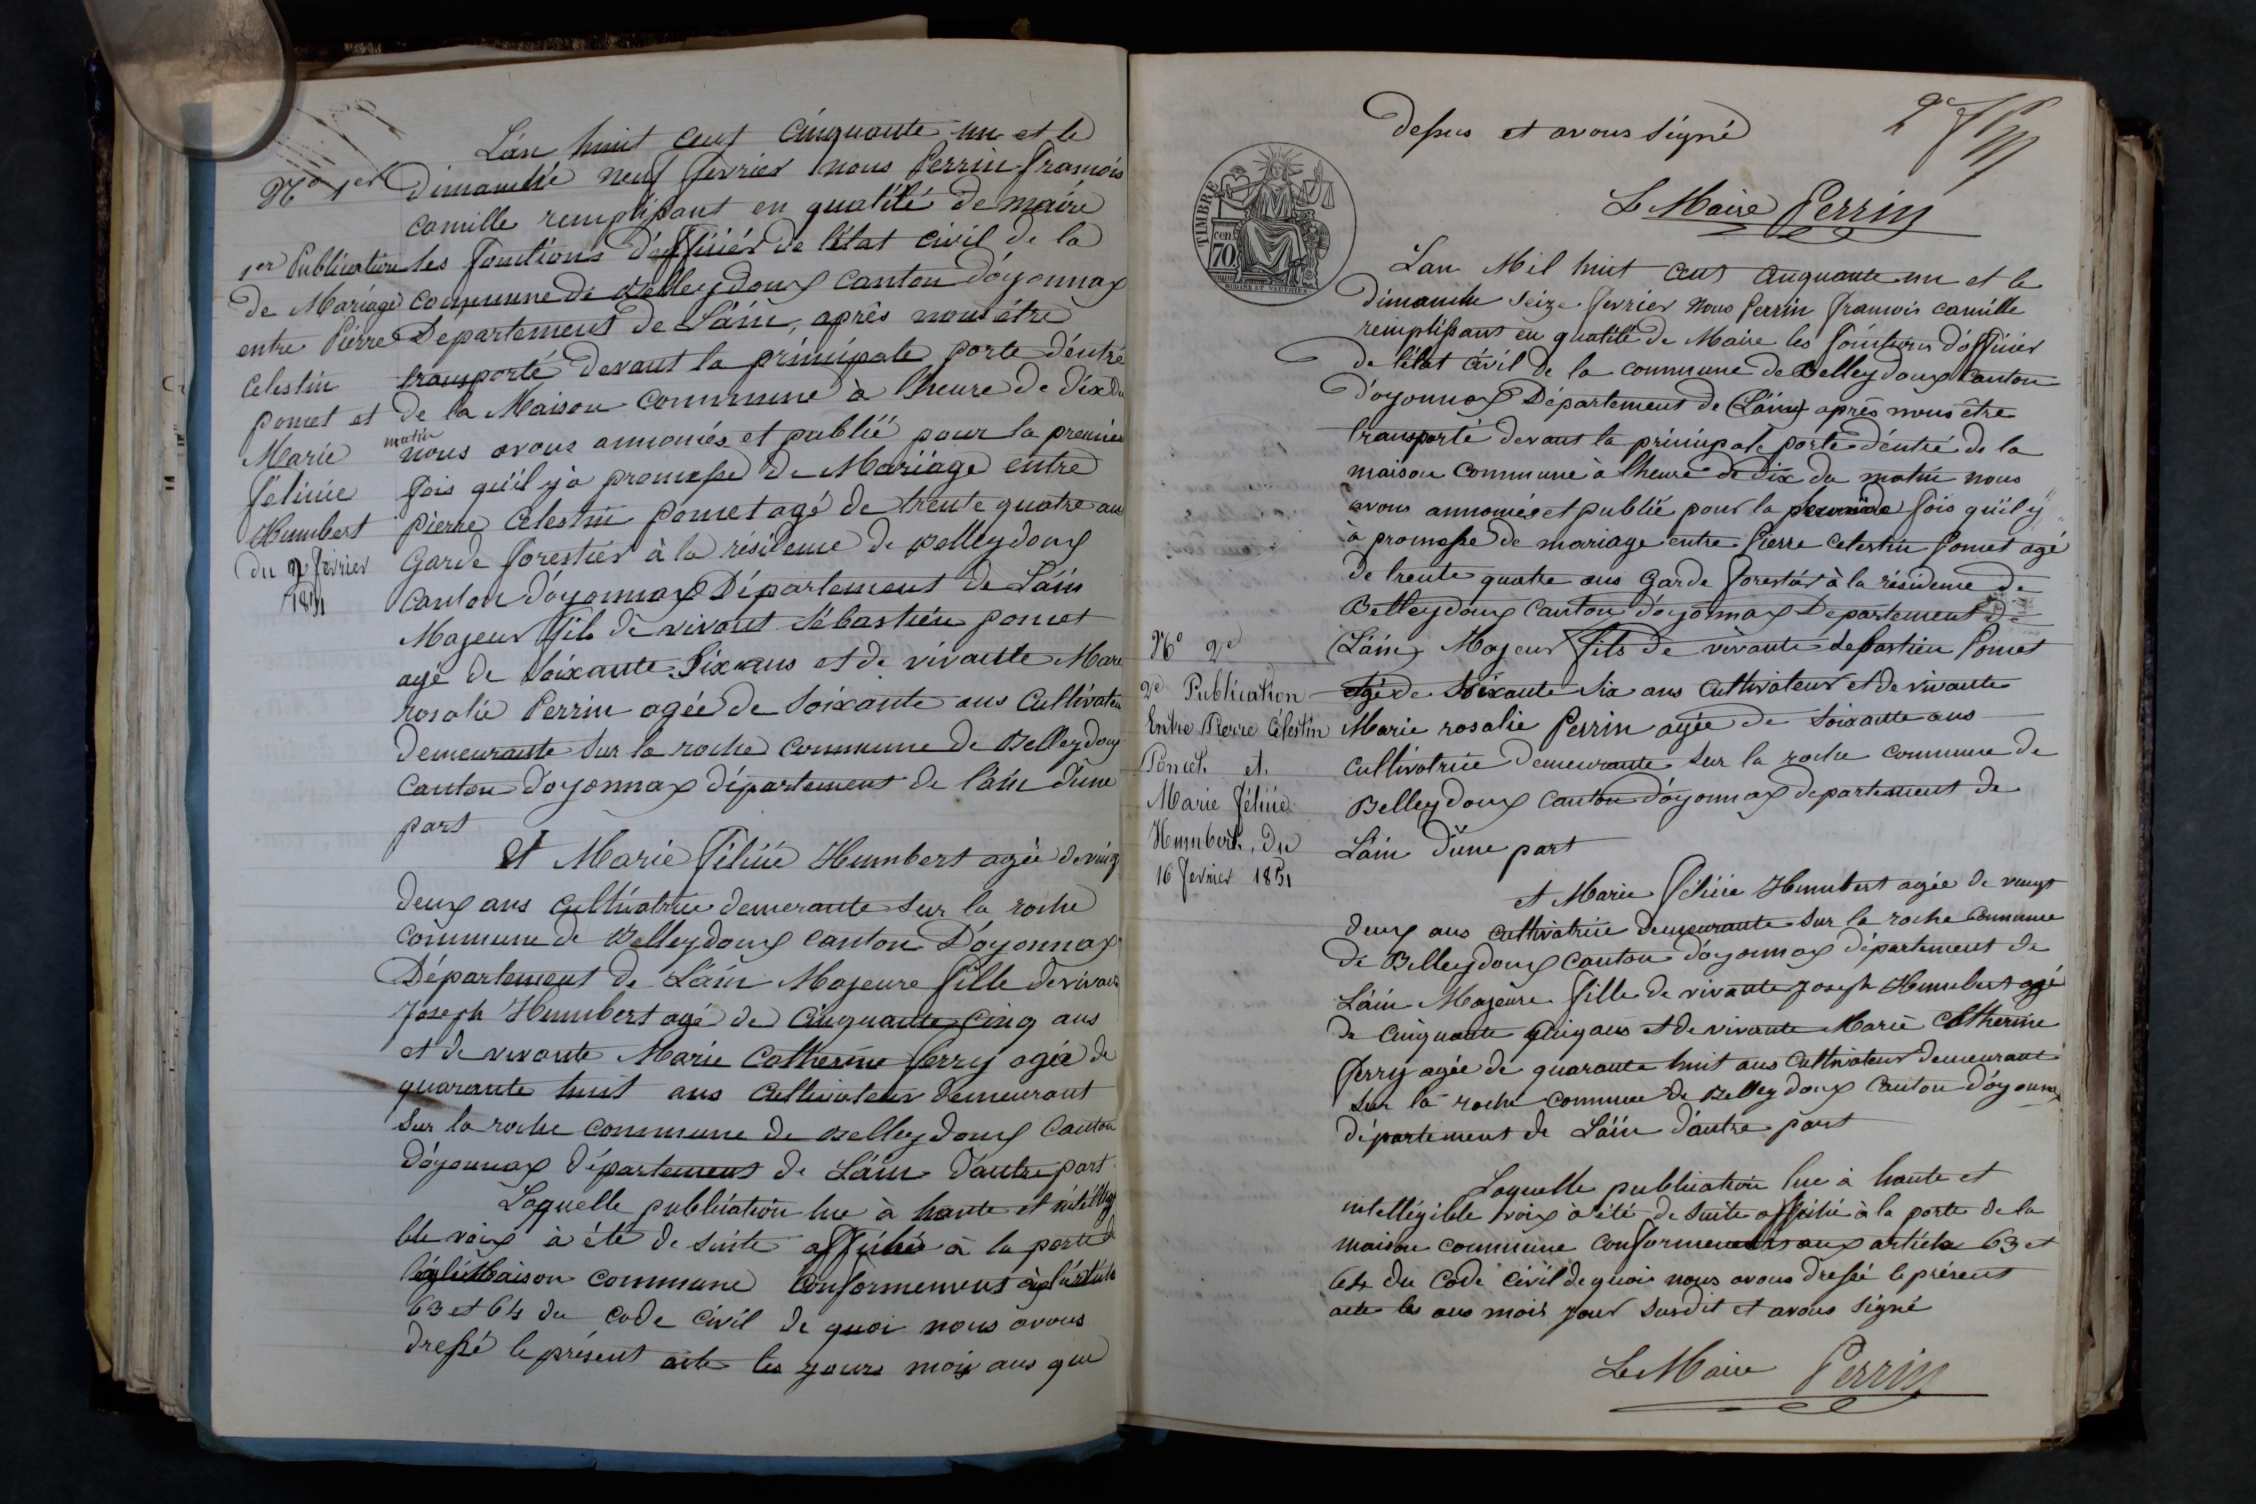 L'an huit cent cinquante un et le
N° 1er
dimanche neuf fevrier nous Perrin François
camille remplissant en qualité de maire
les fonctions d'officier de l'état civil de la
commune de Belleydoux canton d'oyonnax
Departement de L'ain, après nous être
transporté devant la principale porte d'entré
de la Maison commune à l'heure de dix du
matin
nous avons annoncés et publié pour la premier
fois qu'il y a promesse de Mariage entre
pierre Celestin pomet agé de trente quatre ans
Garde forestier à la résidence de Belleydoux
canton d'oyonnax Département de L'ain
Majeur fils de vivant Sébastien pomet
agé de soixante six ans et de vivante Marie
rosalie Perrin agée de soixante ans Cultivateur
demeurante sur la roche commune de Belleydoux
canton d'oyonnax département de l'ain d'une
part
et Marie Félicie Humbert agée de vingt
deux ans cultivatrice demerante sur la roche
commune de Belleydoux canton D'oyonnax
Département de L'ain Majeure fille de vivant
Joseph Humbert agé de cinquante cinq ans
et de vivante Marie Catherine ferry agée de
quarante huit ans cultivateur demeurant
sur la roche commune de Belleydoux Canton
d'oyonnax département de L'ain d'autre part
Laquelle publication lue à haute et intelligi
ble voix à été de suite affiché à la porte de
Maison commune conformement
63 et 64 du code civil de quoi nous avons
dressé le présent acte les jours mois ans que
1er Publication
de Mariage
entre Pierre
Celestin
pomet et
Marie
félicie
Humbert
du 9 fevrier
1851
2e
dessus et avons signé
Le Maire Perrin
TIMBRE
70
cent
L'an Mil huit cent cinquante un et le
dimanche seize fevrier nous Perrin francois camille
remplissant en qualité de Maire les fonctions d'officier
de l'état civil de la commune de Belleydoux Canton
d'oyonnax Département de (L'ain) après nous être
transporté devant la principale porte d'entré de la
maison commune à l'heure de dix du matin nous
avons annoncés et publié pour la seconde fois qu'il y
à promesse de mariage entre Pierre celestin Pomet agé
de trente quatre ans Garde forestier à la résidence de
Belleydoux Canton d'oyonnax Departement de
(L'ain) Majeur fils de vivante sebastien Pomet
agé de soixante six ans Cultivateur et de vivante
Marie rosalie Perrin agée de soixante ans
cultivatrice demeurante sur la roche commune de
Belleydoux canton d'oyonnax departement de
L'ain d'une part
et Marie félicie Humbert agée de vingt
deux ans cultivatrice demeurante sur la roche Commune
de Belleydoux canton d'oyonnax département de
L'ain Majeure fille de vivante Joseph Humbert agé
de cinquante cinq ans et de vivante Marie Catherine
ferry agée de quarante huit ans Cultivateur demeurant
sur la roche commune de Belleydoux Canton d'oyonnax
département de L'ain d'autre part
Laquelle publication lue à haute et
intelligible voix à été de suite affiché à la porte de la
maison commune Conformement aux article 63 et
64 du code civil de quoi nous avons dressé le présent
acte les ans mois jour susdit et avons signé
Le Maire Perrin
N° 2e
2e Publication
Entre Pierre Célestin
Pomet et
Marie féliciè
Humbert, du
16 fevrier 1851